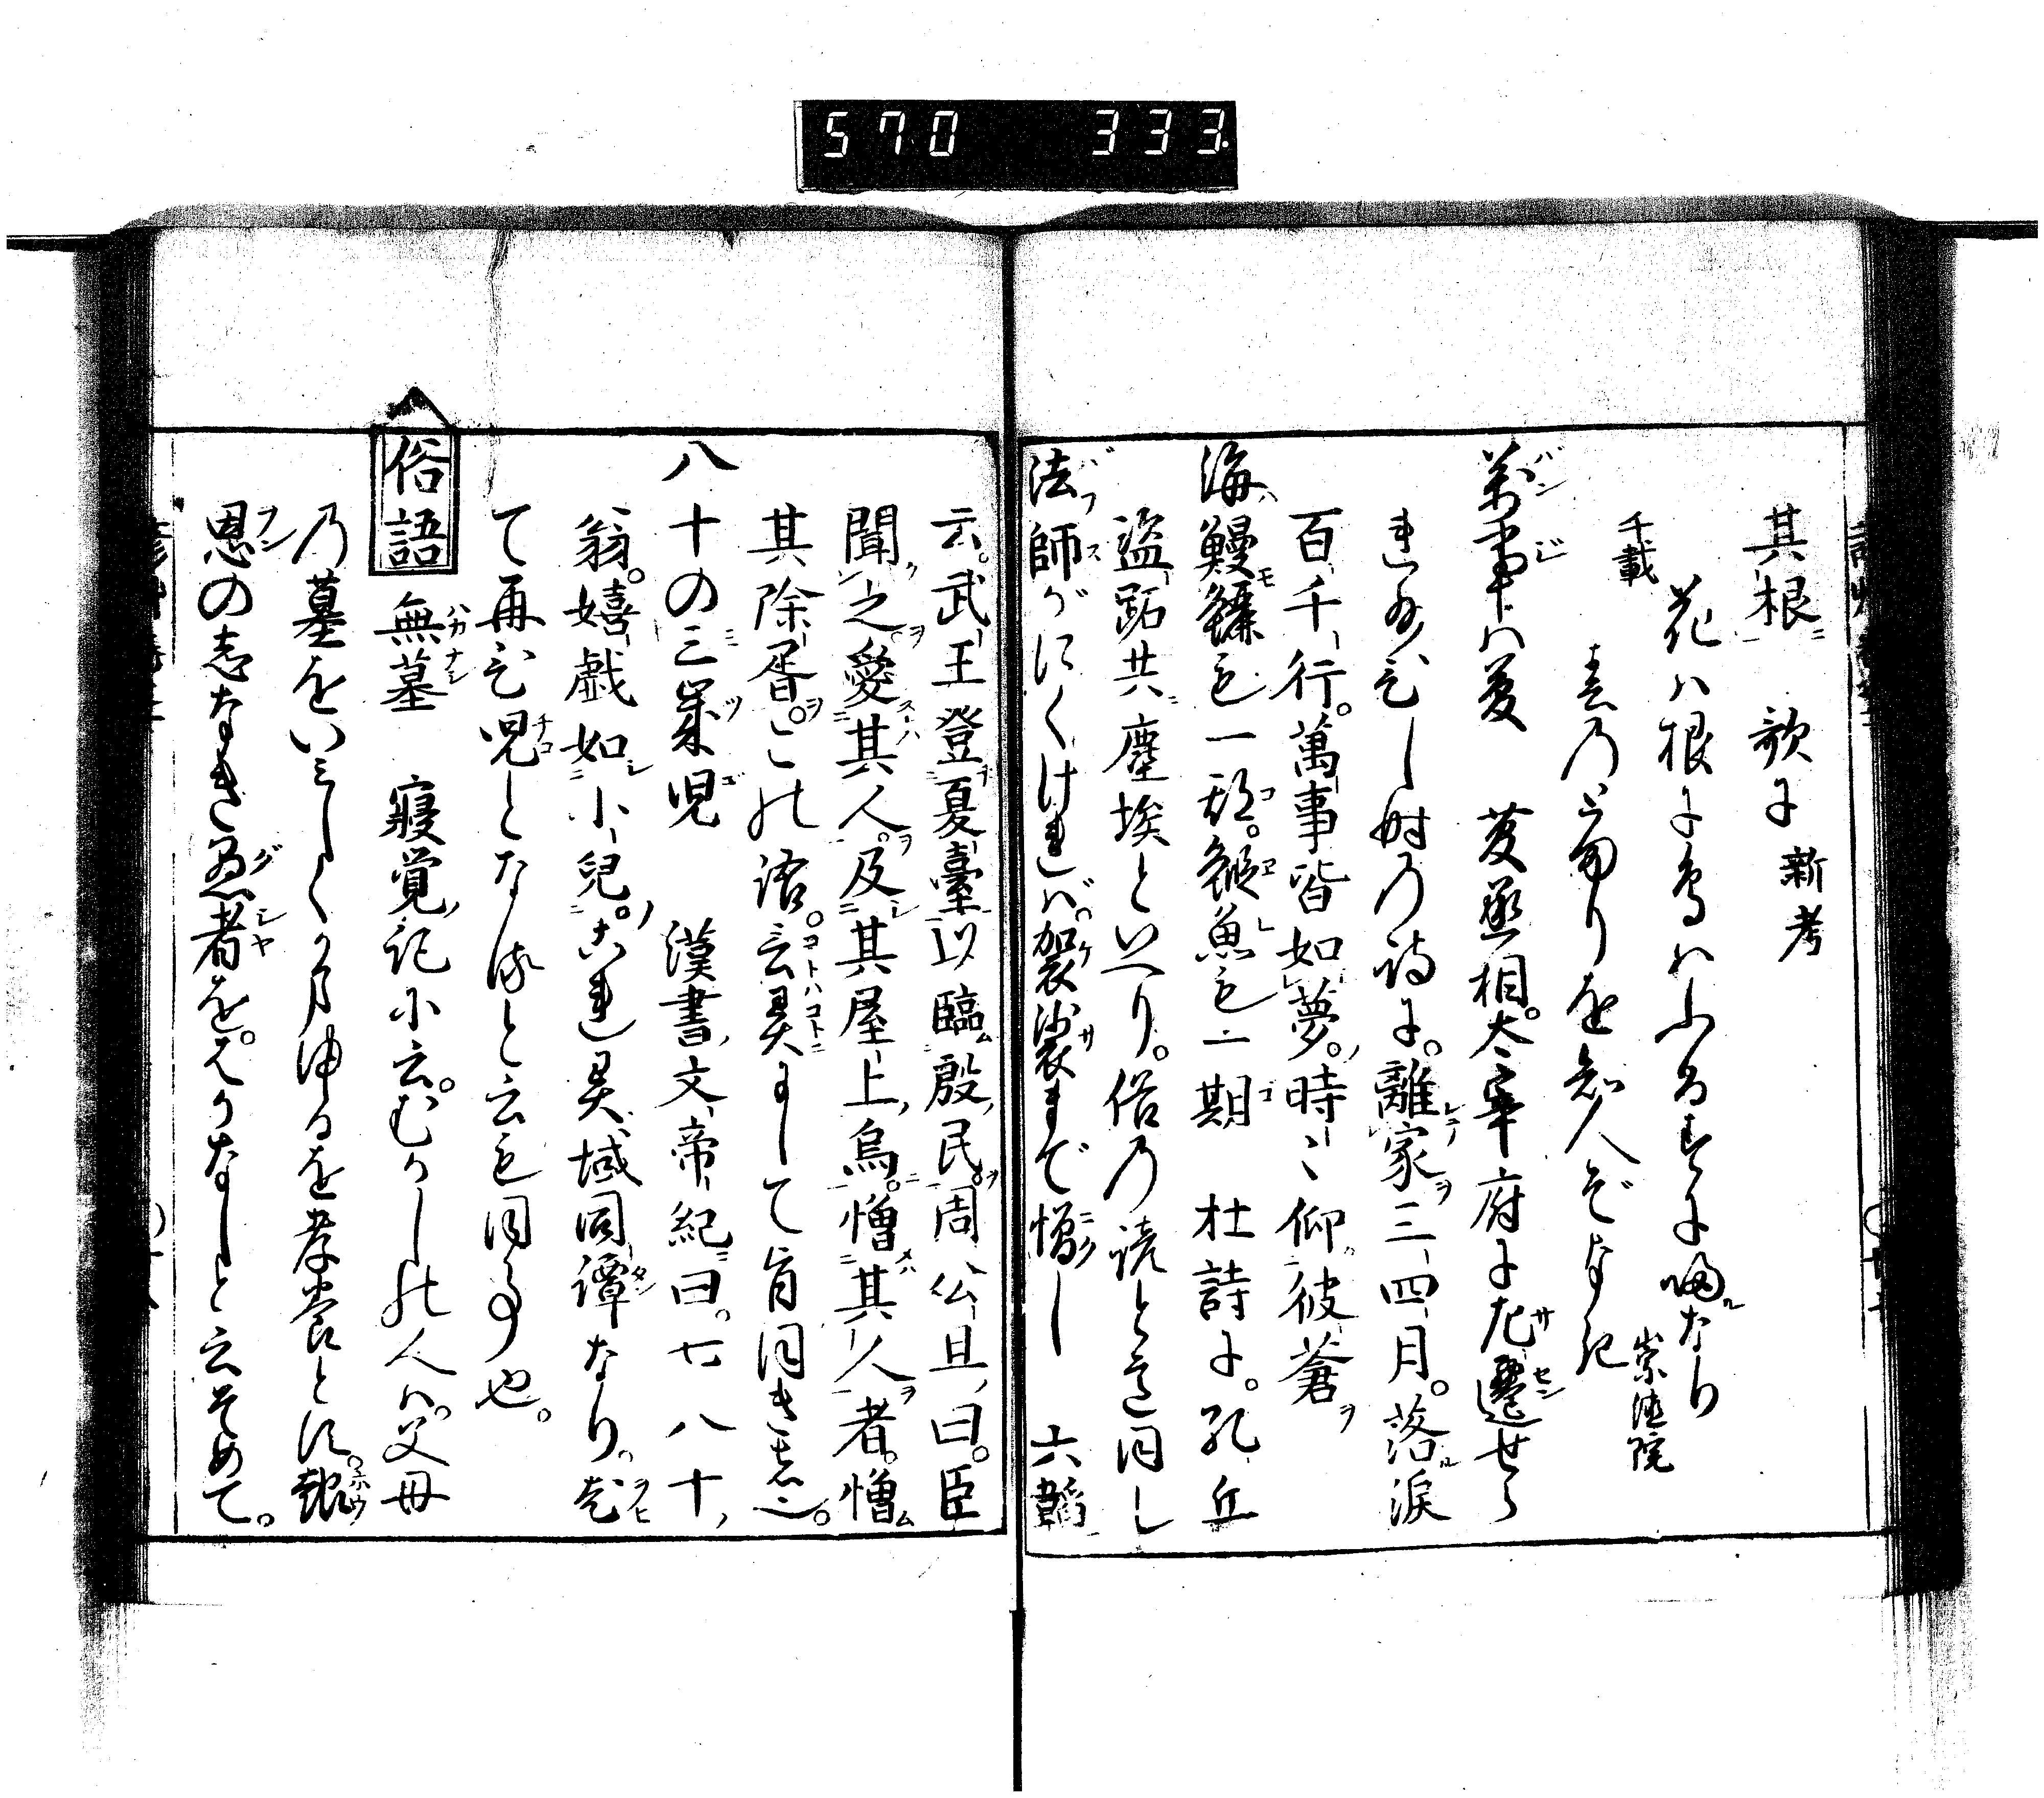 570 333
其根 歌に 新考
花は根に鳥はふるすに帰なり
千載 崇徳院
春乃とまりを知人ぞなき
萬事ハ夢 菅丞相。太宰府に左遷せら
れ給ひし時乃詩に。離家三四月。落涙
百千行。萬事皆如夢。時々仰彼蒼
海鰻鱺も一期。鯷魚も一期 杜詩に。孔丘
盗跖共塵埃といへり。俗乃諺と意同し
法師がにくけれバ。袈裟まで憎し 六韜
云。武王登夏臺以臨殷民。周公旦曰。臣
聞之。愛其人。及其屋上烏。憎其人者。憎
其除胥。この語。言異にして旨同き也。
八十の三歳児 漢書文帝紀曰。七八十
翁。嬉戯如小児。これ異域同譚なり。老
て再び児となると云も同事也。
俗語 無墓 寝覚記に云。むかしの人ハ。父母
乃墓をいミしくかまゆるを孝養とす。報
恩の志なき愚者を。はかなしと云そめて。